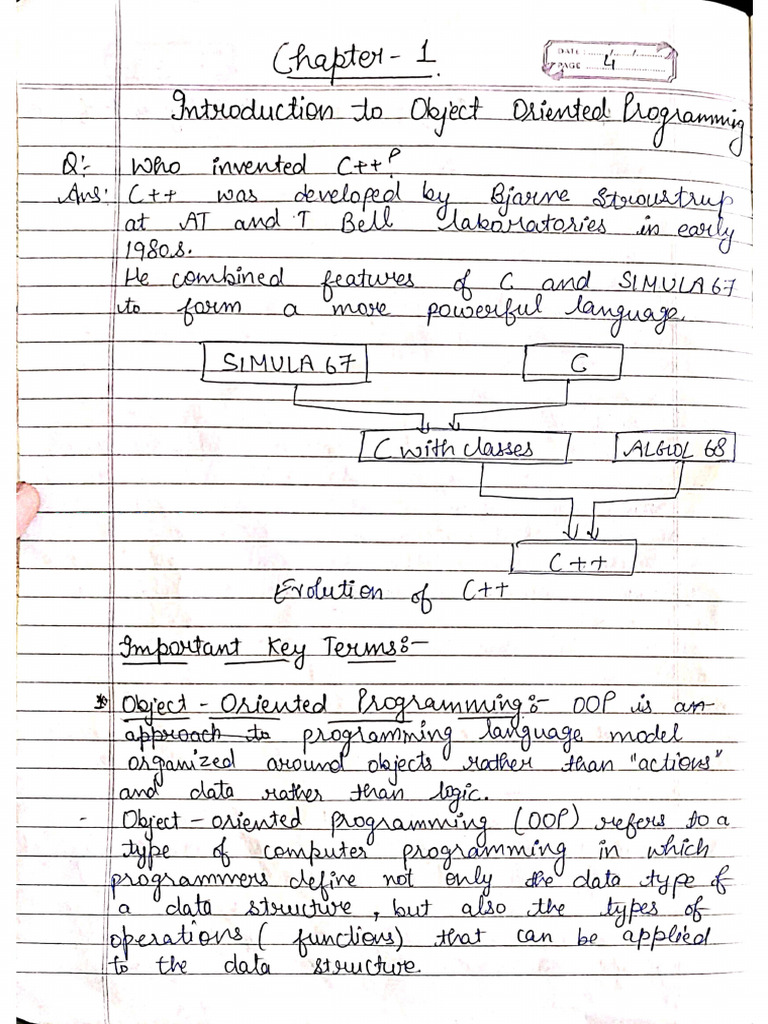 Chapter - 1.
DATE: ...../...../.........
PAGE ...... 4 ..........
Introduction to Object Oriented Programming
Q:- Who invented C++?
Ans: C++ was developed by Bjarne Stroustrup
at AT and T Bell laboratories in early
1980s.
He combined features of C and SIMULA 67
to form a more powerful language.
SIMULA 67
C
C with classes
ALGOL 68
C++
Evolution of C++
Important Key Terms:-
* Object - Oriented Programming:- OOP is an
approach to programming language model
organized around objects rather than "actions"
and data rather than logic.
- Object - oriented programming (OOP) refers to a
type of computer programming in which
programmers define not only the data type of
a data structure, but also the types of
operations ( functions) that can be applied
to the data structure.